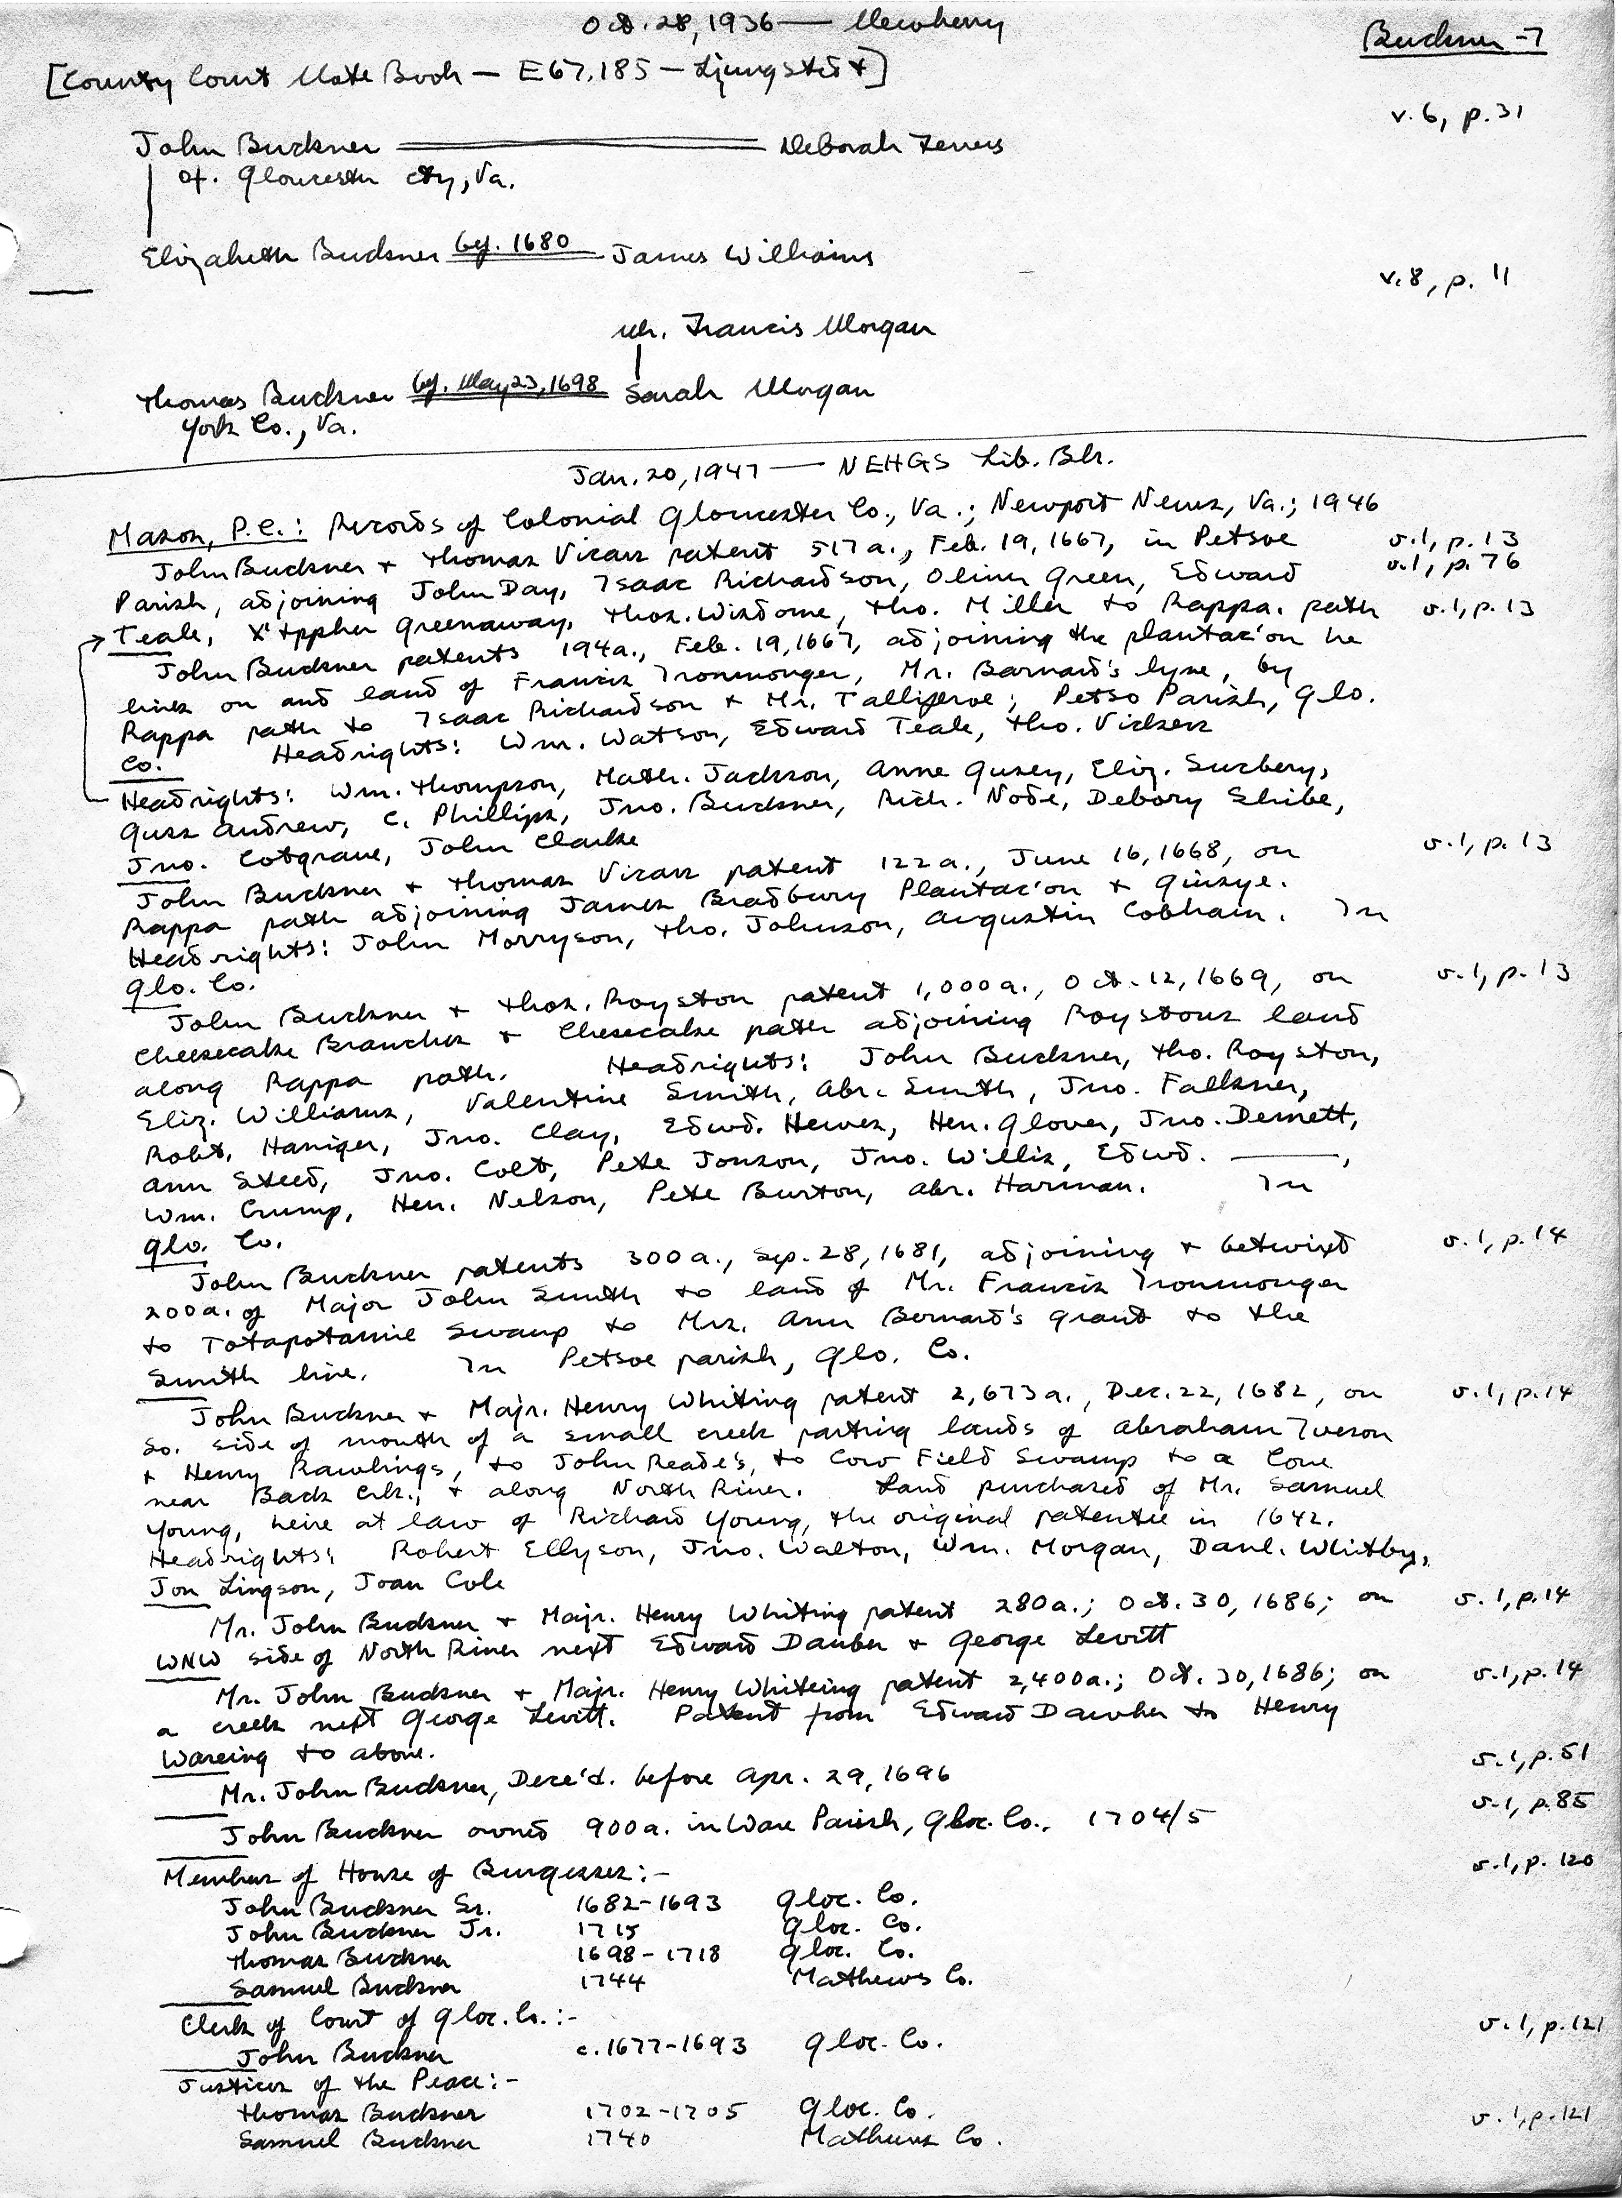 Oct. 28, 1936 — Newberry
Buckner -7
[County Court Note Book — E67.185 — Ljungstedt]
v.6, p.31
John Buckner Deborah Ferrers
of. Gloucester cty, Va.
Elizabeth Buckner bef. 1680 James Williams
v.8, p. 11
Mr. Francis Morgan
Thomas Buckner bef. May 23, 1698 Sarah Morgan
York Co., Va.
Jan. 20, 1947 — NEHGS Lib. Bk.
Mason, P.C.: Records of Colonial Gloucester Co., Va.; Newport News, Va.; 1946
John Buckner + Thomas Vicars patent 517a., Feb. 19, 1667, in Petsoe v.1, p.13
v.1, p.76
Parish, adjoining John Day, Isaac Richardson, Oliver Green, Edward
Teale, X'topher Greenaway, Thos. Wisdome, Tho. Miller to Rappa. path v.1, p.13
John Buckner patents 194a., Feb. 19, 1667, adjoining the plantac'on he
lives on and land of Francis Ironmonger, Mr. Barnard's lyne, by
Rappa path to Isaac Richardson + Mr. Talliferoe; Petso Parish, Glo.
Co. Headrights: Wm. Watson, Edward Teale, Tho. Vickers
Headrights: Wm. Thompson, Math. Jackson, Anne Gusey, Eliz. Surbery,
Guss Andrew, C. Phillips, Jno. Buckner, Rich. Node, Debory Shibe,
Jno. Cotgrave, John Clarke
John Buckner + Thomas Vicars patent 122a., June 16, 1668, on v.1, p.13
Rappa path adjoining James Bradbury Plantac'on + Guisye.
Headrights: John Morryson, Tho. Johnson, Augustin Cobham. In
Glo. Co.
John Buckner + Thos. Royston patent 1,000a., Oct. 12, 1669, on v.1, p.13
Cheesecake Branches + Chesecake path adjoining Roystons land
along Rappa path. Headrights: John Buckner, Tho. Royston,
Eliz. Williams, Valentine Smith, Abr. Smith, Jno. Falkner,
Robt. Haniger, Jno. Clay, Edwd. Hewes, Hen. Glover, Jno. Dennett,
Ann Steed, Jno. Colt, Pete Jonson, Jno. Willis, Edwd. ———,
Wm. Crump, Hen. Nelson, Pete Burton, Abr. Harman. In
Glo. Co.
John Buckner patents 300a., Sep. 28, 1681, adjoining + betwixt v.1, p.14
200a. of Major John Smith to land of Mr. Francis Ironmonger
to Totapotamie Swamp to Mrs. Ann Bernard's grant to the
Smith line. In Petsoe parish, Glo. Co.
John Buckner + Majr. Henry Whiting patent 2,673a., Dec. 22, 1682, on v.1, p.14
So. side of mouth of a small creek parting lands of Abraham Iverson
+ Henry Rawlings, to John Reade's, to Cow Field Swamp to a Cove
near Back Crk., + along North River. Land purchased of Mr. Samuel
Young, heire at law of Richard Young, the original patentee in 1642.
Headrights: Robert Ellyson, Jno. Walton, Wm. Morgan, Danl. Whitby,
Jon Lingson, Joan Cole
Mr. John Buckner + Majr. Henry Whiting patent 280a.; Oct. 30, 1686; on v.1, p.14
WNW side of North River next Edward Dauber + George Levitt
Mr. John Buckner + Majr. Henry Whiteing patent 2,400a.; Oct. 30, 1686; on v.1, p.14
a creek next George Levitt. Patent from Edward Dawber to Henry
Wareing to above.
Mr. John Buckner, Dece'd. before Apr. 29, 1696 v.1, p.51
John Buckner owned 900a. in Ware Parish, Gloc. Co., 1704/5 v.1, p.85
Member of House of Burgesses:- v.1, p.120
John Buckner Sr. 1682-1693 Gloc. Co.
John Buckner Jr. 1715 Gloc. Co.
Thomas Buckner 1698-1718 Gloc. Co.
Samuel Buckner 1744 Mathews Co.
Clerk of Court of Gloc. Co.:- v.1, p.121
John Buckner c.1677-1693 Gloc. Co.
Justices of the Peace:-
Thomas Buckner 1702-1705 Gloc. Co. v.1, p.121
Samuel Buckner 1740 Mathews Co.